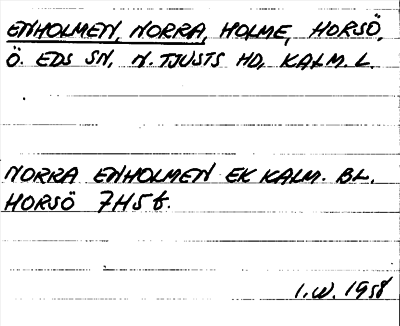 ENHOLMEN, NORRA, HOLME, HORSÖ,
Ö. EDS SN, N. TJUSTS HD, KALM. L.
NORRA ENHOLMEN EK KALM. BL.
HORSÖ 7H5f.
I.W. 1958